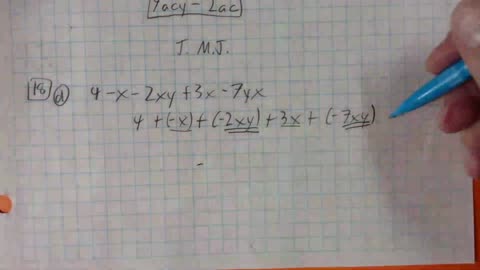 7acy - 2ac
J. M. J.
18 A 4 - x - 2xy + 3x - 7yx
4 + (-x) + (-2xy) + 3x + (-7xy)
-